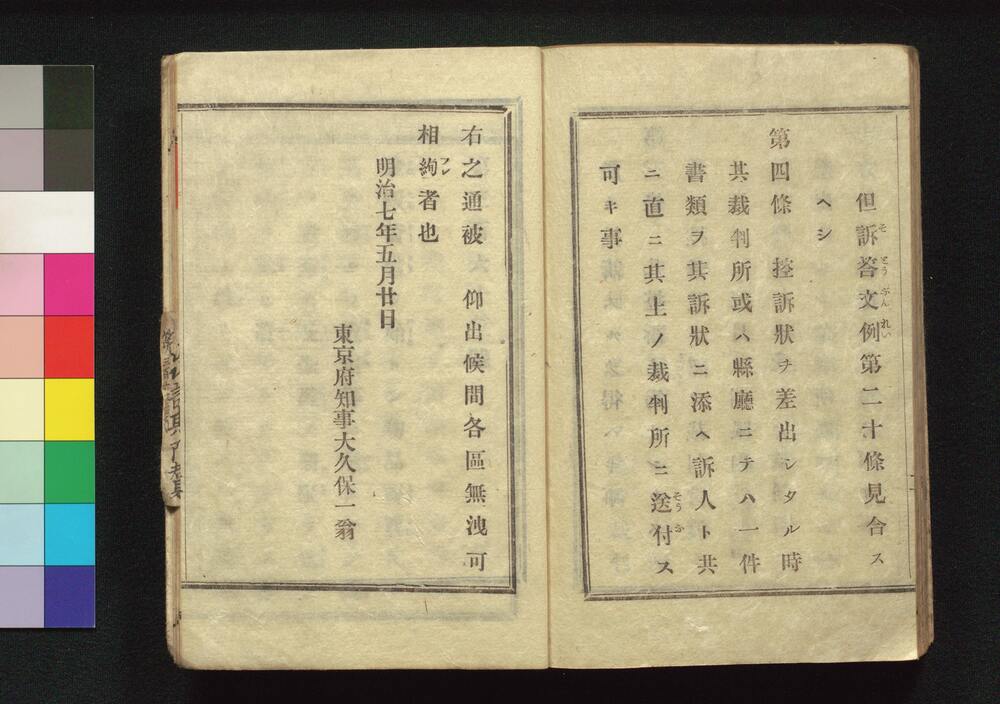 但訴答文例第二十條見合ス
ヘシ
第四條 控訴狀ヲ差出シタル時
其裁判所或ハ縣廳ニテハ一件
書類ヲ其訴狀ニ添ヘ訴人ト共
ニ直ニ其上ノ裁判所ニ送付ス
可キ事
右之通被 仰出候間各區無洩可
相絢者也
明治七年五月廿日
東京府知事大久保一翁